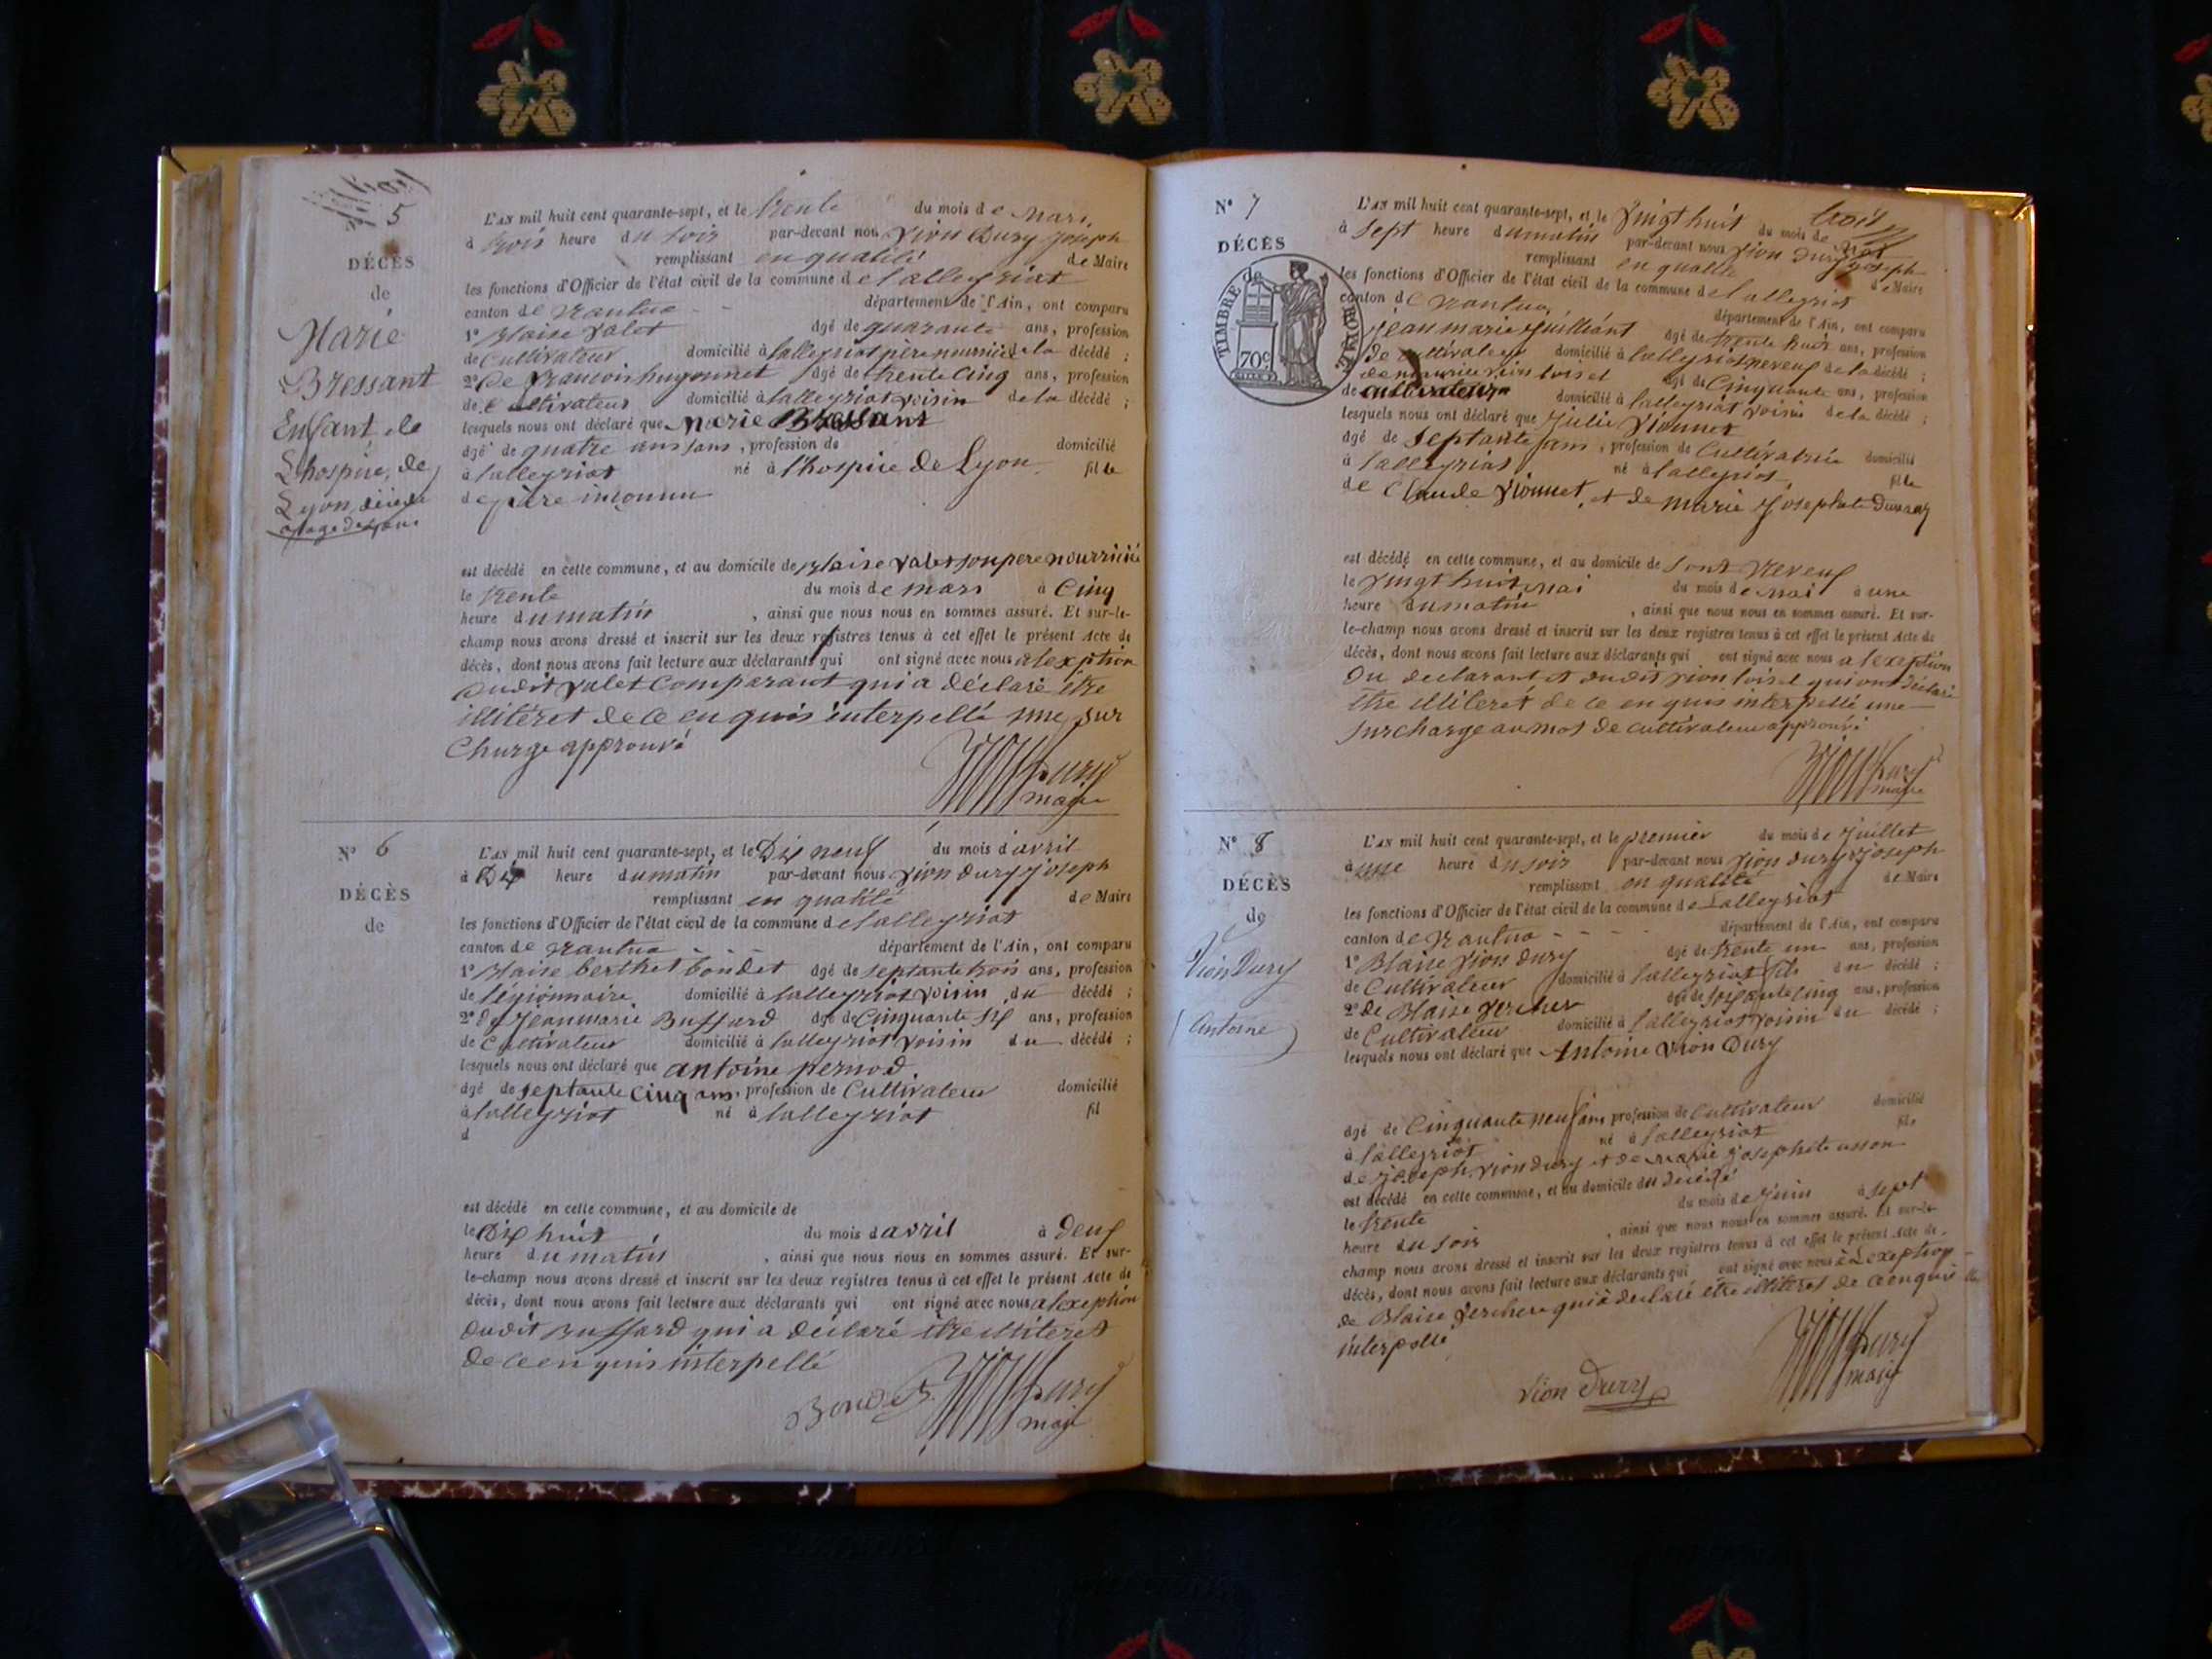 5
DÉCÈS
de
Marie
Bressant
Enfant de
Lhospice de
Lyon
L'AN mil huit cent quarante-sept, et le trente du mois de mars
à trois heure du soir par-devant nous Vion Dury Joseph
remplissant en qualité de Maire
les fonctions d'Officier de l'état civil de la commune de Lalleyriat
canton de Nantua département de l'Ain, ont comparu
1° Blaise Valet âgé de quarante ans, profession
de Cultivateur domicilié à Lalleyriat père nourricié de la décédé ;
2° De francois hugonnet âgé de trente cinq ans, profession
de Cultivateur domicilié à Lalleyriat voisin de la décédé ;
lesquels nous ont déclaré que Marie Bressant
âgé de quatre ans, profession de domicilié
à Lalleyriat né à l'hospice de Lyon fille
de père inconnu
est décédé en cette commune, et au domicile de Blaise Valet son pere nourricié
le trente du mois de mars à Cinq
heure du matin , ainsi que nous nous en sommes assuré. Et sur-le-
champ nous avons dressé et inscrit sur les deux registres tenus à cet effet le présent Acte de
décès, dont nous avons fait lecture aux déclarants qui ont signé avec nous a lexeption
dudit Valet Comparant qui a déclaré être
illitéret de ce enquis interpellé une sur
Charge approuvé
Vion Dury
maire
N° 6
DÉCÈS
de
L'AN mil huit cent quarante-sept, et le Dix neuf du mois d'avril
à Dix heure du matin par-devant nous Vion Dury Joseph
remplissant en qualité de Maire
les fonctions d'Officier de l'état civil de la commune de Lalleyriat
canton de Nantua département de l'Ain, ont comparu
1° Blaise berthet bondet âgé de septante trois ans, profession
de légionnaire domicilié à Lalleyriat voisin du décédé ;
2° de Jean marie Buffard âgé de Cinquante six ans, profession
de Cultivateur domicilié à Lalleyriat voisin du décédé ;
lesquels nous ont déclaré que antoine pernod
âgé de septante cinq ans, profession de Cultivateur domicilié
à Lalleyriat né à Lalleyriat fil
d
est décédé en cette commune, et au domicile de
le Dix huit du mois d avril à deux
heure du matin , ainsi que nous nous en sommes assuré. Et sur-
le-champ nous avons dressé et inscrit sur les deux registres tenus à cet effet le présent Acte de
décès, dont nous avons fait lecture aux déclarants qui ont signé avec nous a lexeption
dudit Buffard qui a déclaré être illiteret
de ce enquis interpellé
Bondet Vion Dury
maire
N° 7
DÉCÈS
de
TIMBRE ROYAL
70c
L'AN mil huit cent quarante-sept, et le vingt huit du mois de mai
à sept heure du matin par-devant nous Vion Dury Joseph
remplissant en qualité de Maire
les fonctions d'Officier de l'état civil de la commune de Lalleyriat
canton de Nantua département de l'Ain, ont comparu
jean marie Juilliant âgé de trente huit ans, profession
de cultivateur domicilié à Lalleyriat neveuf de la décédé ;
vion loisel âgé de Cinquante ans, profession
de cultivateur domicilié à Lalleyriat voisin de la décédé ;
lesquels nous ont déclaré que Julie Vionnet
âgé de septante ans, profession de Cultivatrice domicilié
à Lalleyriat né à Lalleyriat fille
de Claude Vionnet et de marie Josephete
est décédé en cette commune, et au domicile de sont Neveuf
le vingt huit mai du mois de mai à une
heure du matin , ainsi que nous nous en sommes assuré. Et sur-
le-champ nous avons dressé et inscrit sur les deux registres tenus à cet effet le présent Acte de
décès, dont nous avons fait lecture aux déclarants qui ont signé avec nous a lexeption
Du declarant et dudit vion loisel qui ont déclaré
être illiteret de ce enquis interpellé une
surcharge au mot de cultivateur approuvé
Vion Dury
maire
N° 8
DÉCÈS
de
Vion Dury
(Antoine)
L'AN mil huit cent quarante-sept, et le premier du mois de Juillet
à une heure du soir par-devant nous Vion Dury Joseph
remplissant en qualité de Maire
les fonctions d'Officier de l'état civil de la commune de Lalleyriat
canton de Nantua département de l'Ain, ont comparu
1° Blaise Vion Dury âgé de trente un ans, profession
de Cultivateur domicilié à Lalleyriat fils du décédé ;
2° de Blaise Vercher âgé de soixante cinq ans, profession
de Cultivateur domicilié à Lalleyriat voisin du décédé ;
lesquels nous ont déclaré que Antoine Vion Dury
âgé de Cinquante neuf ans, profession de Cultivateur domicilié
à Lalleyriat né à Lalleyriat fils
de Joseph Vion Dury et de marie Josephete
est décédé en cette commune, et au domicile du décédé
le trente du mois de Juin à sept
heure du soir , ainsi que nous nous en sommes assuré. Et sur-le-
champ nous avons dressé et inscrit sur les deux registres tenus à cet effet le présent Acte de
décès, dont nous avons fait lecture aux déclarants qui ont signé avec nous à Lexeption
de Blaise Verchere qui à declaré être illiteret de ce enquis
interpellé
Vion Dury Vion Dury
maire